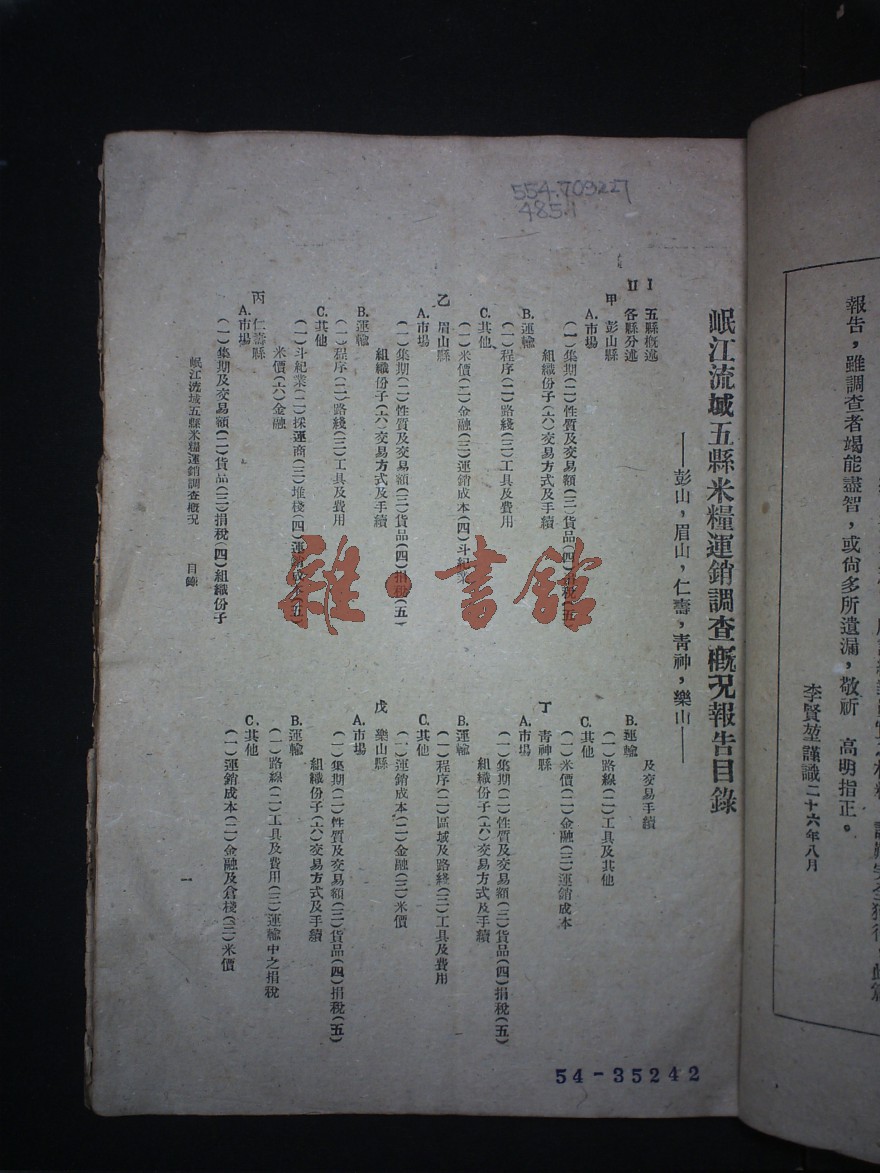 554.709227
485.1
岷江流域五縣米糧運銷調查概況報告目錄
——彭山，眉山，仁壽，靑神，樂山——
I 五縣概述
II 各縣分述
甲 彭山縣
A.市塲
（一）集期（二）性質及交易額（三）貨品（四）捐稅（五）
組織份子（六）交易方式及手續
B.運輸
（一）程序（二）路綫（三）工具及費用
C.其他
（一）米價（二）金融（三）運銷成本（四）斗紀業
乙 眉山縣
A.市塲
（一）集期（二）性質及交易額（三）貨品（四）捐稅（五）
組織份子（六）交易方式及手續
B.運輸
（一）程序（二）路綫（三）工具及費用
C.其他
（一）斗紀業（二）採運商（三）堆棧（四）運銷成本（五）
米價（六）金融
丙 仁壽縣
A.市塲
（一）集期及交易額（二）貨品（三）捐稅（四）組織份子
及交易手續
B.運輸
（一）路線（二）工具及其他
C.其他
（一）米價（二）金融（三）運銷成本
丁 靑神縣
A.市塲
（一）集期（二）性質及交易額（三）貨品（四）捐稅（五）
組織份子（六）交易方式及手續
B.運輸
（一）程序（二）區域及路綫（三）工具及費用
C.其他
（一）運銷成本（二）金融（三）米價
戊 樂山縣
A.市塲
（一）集期（二）性質及交易額（三）貨品（四）捐稅（五）
組織份子（六）交易方式及手續
B.運輸
（一）路線（二）工具及費用（三）運輸中之捐稅
C.其他
（一）運銷成本（二）金融及倉棧（三）米價
岷江流域五縣米糧運銷調查概況 目錄
一
54-35242
雜·書館
報告，雖調查者竭能盡智，或尙多所遺漏，敬祈 高明指正。
李賢堃謹識二十六年八月